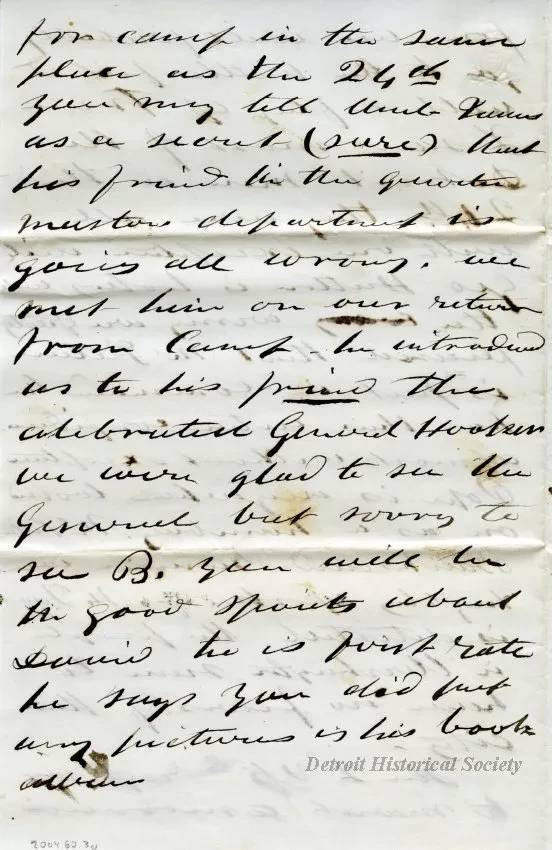 for camp in the same
place as the 24th
you my tell Uncle
as a secret (sure) that
his frind in the quarter
masters department is
going all wrong. we
met him on our return
from Camp - he introdued
us to his frind the
celebrated General Hooker
we were glad to see the
General but sorry to
see B. you will be
in good spirits about
David he is first rate
he says you did put
any pictures is his book
album
Detroit Historical Society